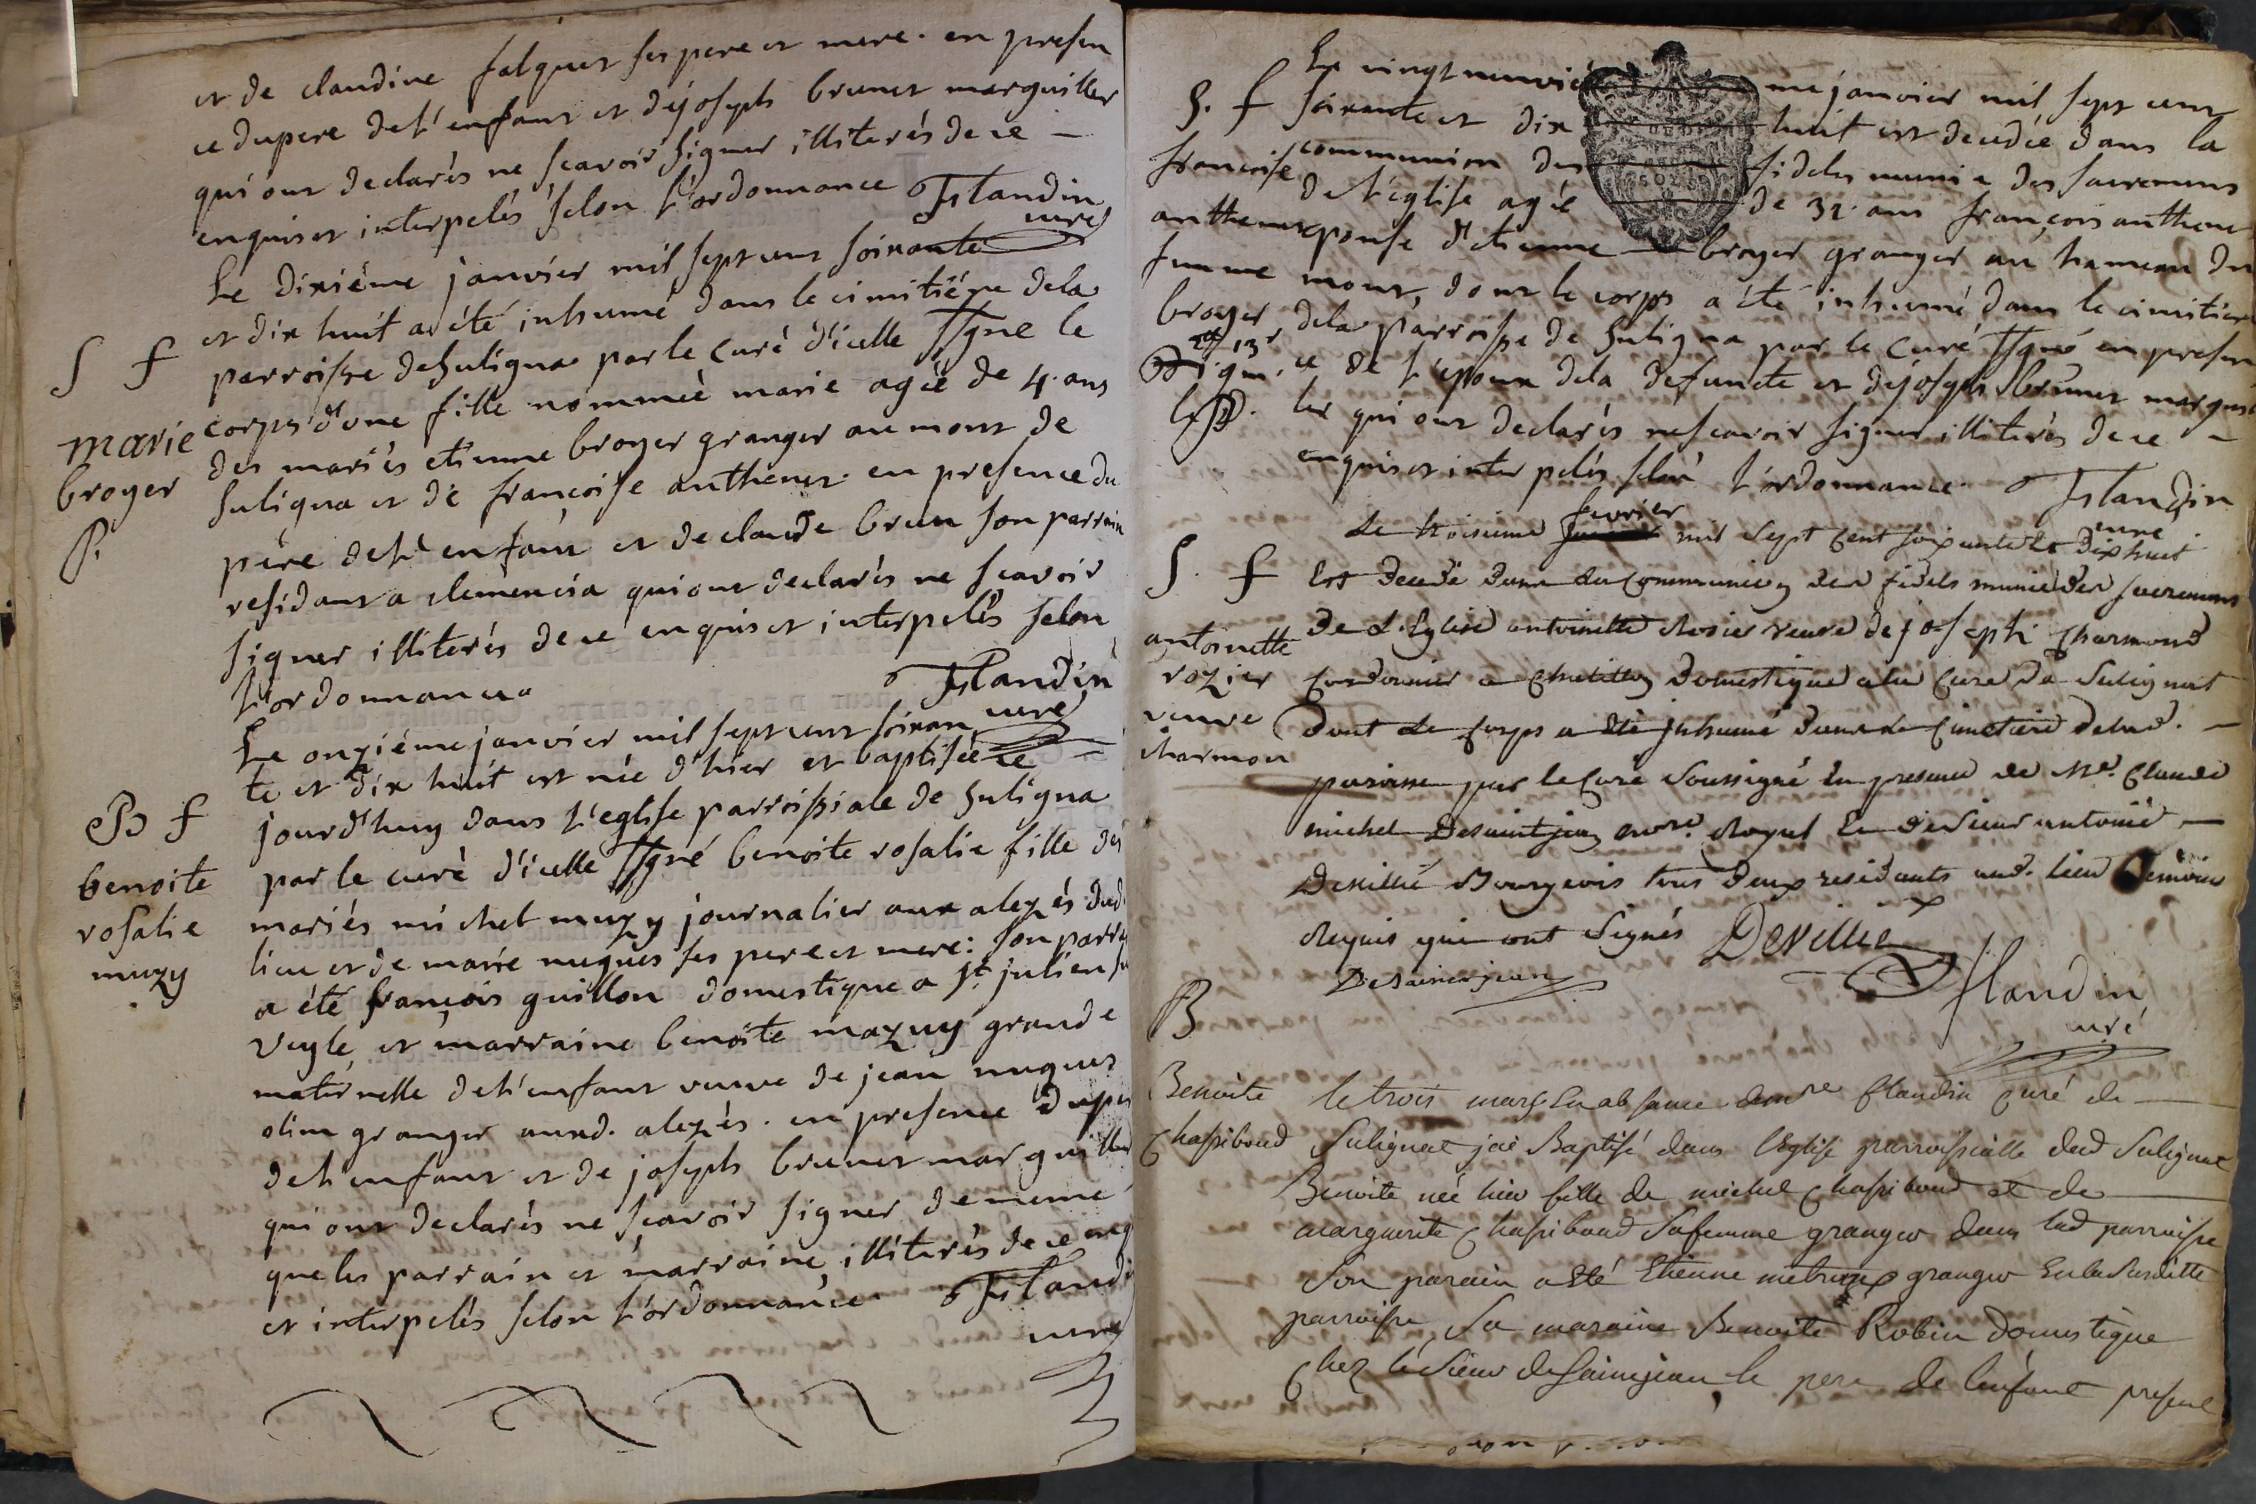 et de claudine falquet ses pere et mere. en presen
ce du pere de l'enfant et de joseph brunet marguiller
qui ont declarés ne scavoir signer illiterés de ce –
enquis et interpelés selon l'ordonnance Flandin
curé
Le dixiéme janvier mil sept cent soixante
et dix huit a été inhumé dans le cimitiére dela
S f
parroisse de Suligna par le curé d'icelle ssgné le
corps d'une fille nommée marie agée de 4. ans
marie
broyer
P.
des mariés etienne broyer granger au mont de
Suligna et de françoise anthenet. en presence du
pere de l'enfant et de claude brun son parrain
residant a clemencia qui ont declarés ne scavoir
signer illiterés de ce enquis et interpelés selon
l'ordonnance Flandin
curé
Le onziéme janvier mil sept cent soixan
te et dix huit est née d'hier et baptisée ce
B f
jourd'huy dans l'eglise parroissiale de Suligna
benoite
rosalie
muzy
par le curé d'icelle ssgné benoite rosalie fille des
mariés michel muzy journalier aux alezés dud
lieu et de marie nugues ses pere et mere: son parra
a été françois guillon domestique a st. julien su
veyle et marraine benoite mazuy grande
maternelle de l'enfant veuve de jean nugues
olim granger aud. alezés. en presence du per
de l'enfant et de joseph brunet marguiller
qui ont declarés ne scavoir signer de meme
que les parrain et marraine, illiterés de ce enq
et interpelés selon l'ordonnance Flandi
curé
Le vingt neuvié me janvier mil sept cent
S. f
soixante et dix huit est decedée dans la
françoise
anthenet
femme
broyer
communion des fideles munie des sacremens
de l'eglise agée de 32. ans françoise anthene
epouse d'etienne broyer granger au hameau du
mont, dont le corps a été inhumé dans le cimitier
dela parroisse de Suligna par le curé ssgné en presen
ce de l'epoux dela defuncte et de joseph brunet margui
ler qui ont declarés ne scavoir signer illiterés de ce –
enquis et interpelés selon l'ordonnance. Flandin
curé
Le troisieme fevrier mil sept cent soixante et dix huit
S. f
Est decedé dans la communion des fidels munie des sacremens
antoinette
rozier
veuve
charmon
de L'Eglise antoinette Rosier veuve de joseph Charmond
Cordonnier a Chatillon Domestique a la Cure de Sulignat
dont le Corps a été jnhumé dans le Cimetiere de lad. –
paroisse par le Curé Soussigné En presence de Me. Claude
michel Desaintjean Nore. Royal Et de Sieur antoine –
Deville Bourgeois tous deux residants aud. lieu Temoins
Requis qui ont Signés Deville
Desaintjean
Flandin
curé
B
Benoite
Chassiboud
le trois mars En absance de mre Flandin Curé de
Sulignat jai Baptisé dans l'Eglise parroissialle dud Sulignat
Benoite née hier fille de michel Chassiboud et de
marguerite Chassiboud Sa femme granger dans lad parroisse
Son parain a Eté Etienne metraux granger En la Susditte
parroisse Sa maraine Benoite Robin domestique
Chez le Sieur desaintjean, le pere de l'enfant present